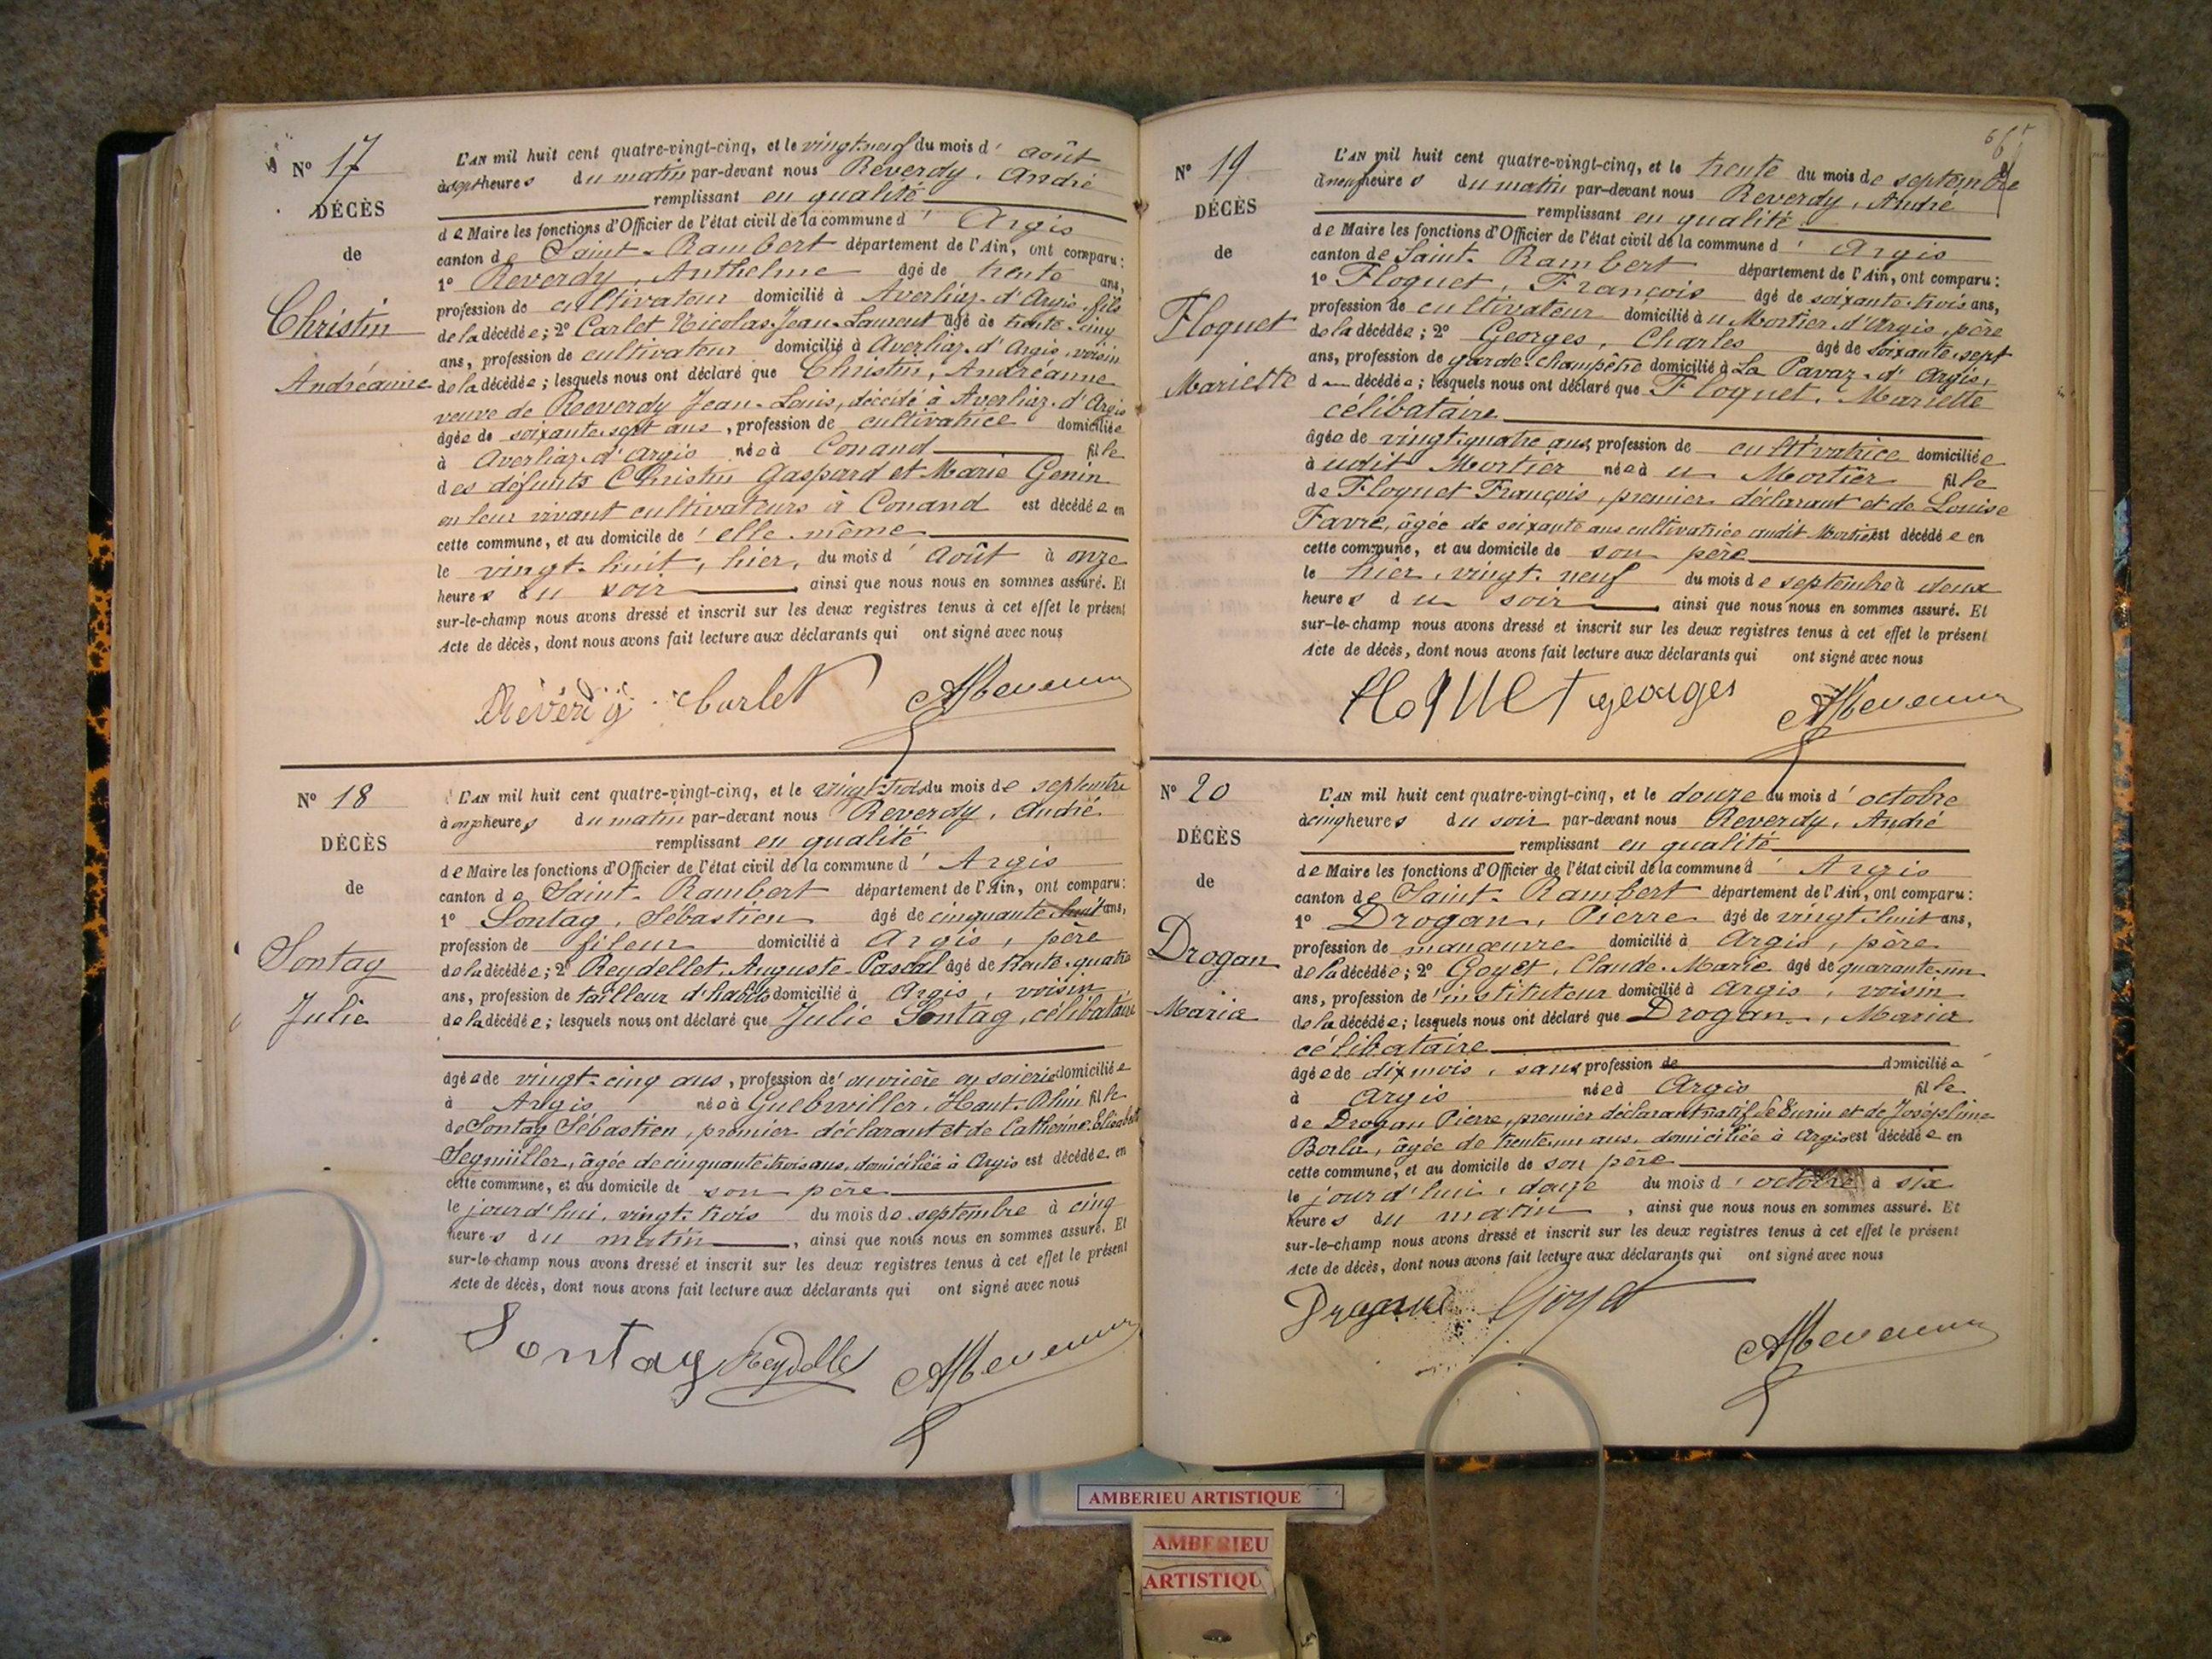 N° 17
DÉCÈS
de
Christin
Andréanne
L'AN mil huit cent quatre-vingt-cinq, et le vingt-neuf du mois d' août
à sept heures du matin par-devant nous Reverdy, André
remplissant en qualité
de Maire les fonctions d'Officier de l'état civil de la commune d' Argis
canton de Saint-Rambert département de l'Ain, ont comparu:
1° Reverdy, Anthelme âgé de trente ans,
profession de cultivateur domicilié à Averliaz-d'Argis, fils
de la décédée; 2° Carlet Nicolas-Jean-Laurent âgé de trente-cinq
ans, profession de cultivateur domicilié à Averliaz-d'Argis, voisin
de la décédée; lesquels nous ont déclaré que Christin, Andréanne
veuve de Reverdy Jean-Louis, décédé à Averliaz-d'Argis
âgée de soixante-sept ans, profession de cultivatrice domiciliée
à Averliaz-d'Argis née à Conand fille
des défunts Christin Gaspard et Marie Genin
en leur vivant cultivateurs à Conand est décédée en
cette commune, et au domicile de ' elle-même
le vingt-huit, hier, du mois d' août à onze
heures du soir ainsi que nous nous en sommes assuré. Et
sur-le-champ nous avons dressé et inscrit sur les deux registres tenus à cet effet le présent
Acte de décès, dont nous avons fait lecture aux déclarants qui ont signé avec nous
Réverdy Carlet
N° 18
DÉCÈS
de
Sontag
Julie
L'AN mil huit cent quatre-vingt-cinq, et le vingt-trois du mois de septembre
à onze heures du matin par-devant nous Reverdy, André
remplissant en qualité
de Maire les fonctions d'Officier de l'état civil de la commune d' Argis
canton de Saint-Rambert département de l'Ain, ont comparu:
1° Sontag, Sébastien âgé de cinquante-huit ans,
profession de fileur domicilié à Argis, père
de la décédée; 2° Reydellet, Auguste-Pascal âgé de trente-quatre
ans, profession de tailleur d'habits domicilié à Argis, voisin
de la décédée; lesquels nous ont déclaré que Julie Sontag, célibataire
âgée de vingt-cinq ans, profession d' ouvrière en soierie domiciliée
à Argis née à Guebwiller, Haut-Rhin fille
de Sontag Sébastien, premier déclarant et de Catherine-Elisabeth
Segmüller, âgée de cinquante-trois ans, domiciliée à Argis est décédée en
cette commune, et au domicile de son père
le jourd'hui, vingt-trois du mois de septembre à cinq
heures du matin, ainsi que nous nous en sommes assuré. Et
sur-le-champ nous avons dressé et inscrit sur les deux registres tenus à cet effet le présent
Acte de décès, dont nous avons fait lecture aux déclarants qui ont signé avec nous
Sontag Reydellet
N° 19
DÉCÈS
de
Floquet
Mariette
L'AN mil huit cent quatre-vingt-cinq, et le trente du mois de septembre
à neuf heures du matin par-devant nous Reverdy, André
remplissant en qualité
de Maire les fonctions d'Officier de l'état civil de la commune d' Argis
canton de Saint-Rambert département de l'Ain, ont comparu:
1° Floquet, François âgé de soixante-trois ans,
profession de cultivateur domicilié à u Mortier-d'Argis, père
de la décédée; 2° Georges, Charles âgé de soixante-sept
ans, profession de garde-champêtre domicilié à La Pavaz-d'Argis,
d décédée; lesquels nous ont déclaré que Floquet, Mariette
célibataire
âgée de vingt-quatre ans, profession de cultivatrice domiciliée
à udit Mortier née à u Mortier fille
de Floquet François, premier déclarant et de Louise
Favre, âgée de soixante ans cultivatrice audit Mortier est décédée en
cette commune, et au domicile de son père
le hier, vingt-neuf du mois de septembre à deux
heures du soir ainsi que nous nous en sommes assuré. Et
sur-le-champ nous avons dressé et inscrit sur les deux registres tenus à cet effet le présent
Acte de décès, dont nous avons fait lecture aux déclarants qui ont signé avec nous
floquet georges
N° 20
DÉCÈS
de
Drogan
Maria
L'AN mil huit cent quatre-vingt-cinq, et le douze du mois d' octobre
à cinq heures du soir par-devant nous Reverdy, André
remplissant en qualité
de Maire les fonctions d'Officier de l'état civil de la commune d' Argis
canton de Saint-Rambert département de l'Ain, ont comparu:
1° Drogan, Pierre âgé de vingt-huit ans,
profession de manœuvre domicilié à Argis, père
de la décédée; 2° Goyet, Claude-Marie âgé de quarante-un
ans, profession d' instituteur domicilié à Argis, voisin
de la décédée; lesquels nous ont déclaré que Drogan, Maria
célibataire
âgée de dix mois, sans profession de domiciliée
à Argis née à Argis fille
de Drogan Pierre, premier déclarant natif de Turin et de Joséphine
Borla, âgée de trente-un ans, domiciliée à Argis est décédée en
cette commune, et au domicile de son père
le jourd'hui, douze du mois d' octobre à six
heures du matin, ainsi que nous nous en sommes assuré. Et
sur-le-champ nous avons dressé et inscrit sur les deux registres tenus à cet effet le présent
Acte de décès, dont nous avons fait lecture aux déclarants qui ont signé avec nous
Goyet
AMBERIEU ARTISTIQUE
AMBERIEU
ARTISTIQU